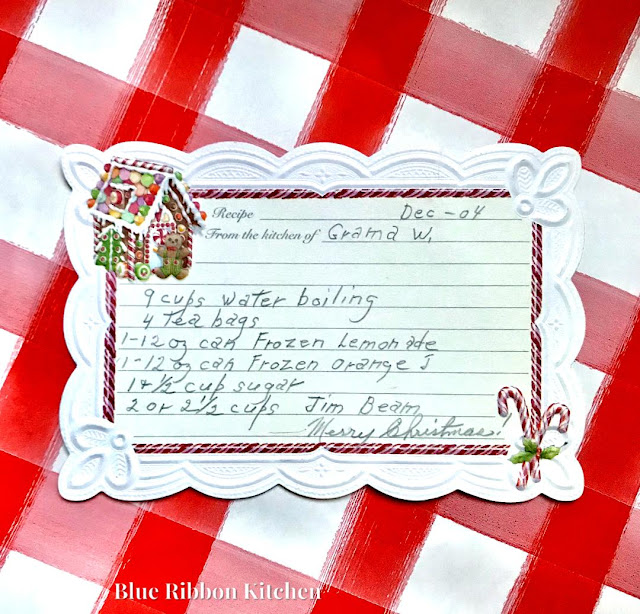 Recipe Dec - 04
From the kitchen of Grama W.
9 cups water boiling
4 Tea bags
1-12 oz can Frozen Lemonade
1-12 oz can Frozen Orange J
1 + 1/2 cup sugar
2 or 2 1/2 cups Jim Beam
Merry Christmas!
Blue Ribbon Kitchen